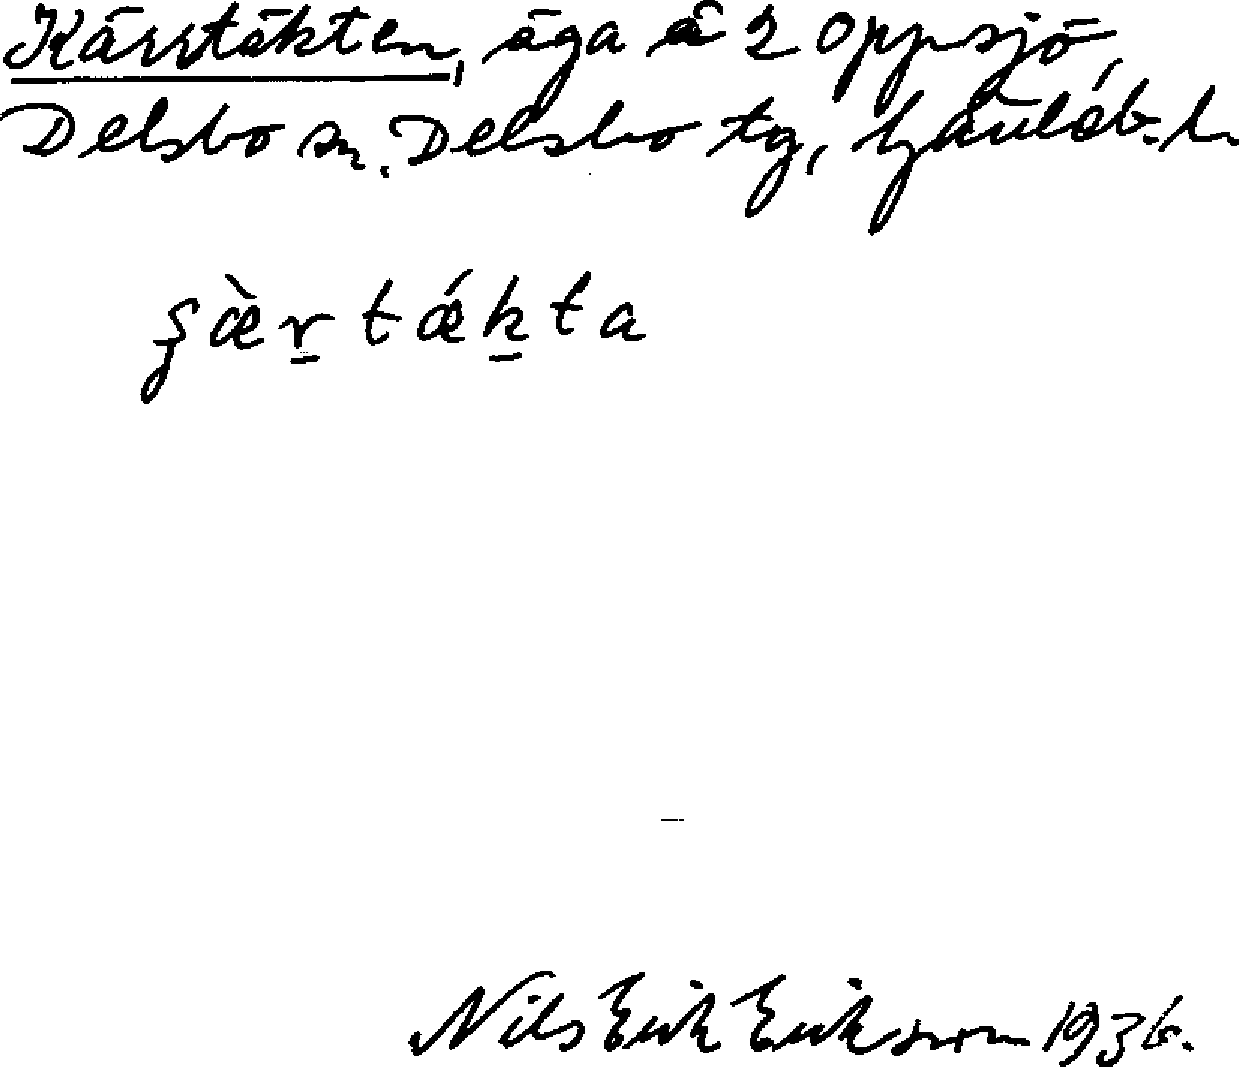 Kärrtäkten, äga å 2 Oppsjö,
Delsbo sn. Delsbo tg, Gävleb. l.
tæ̀r̠tǽk̠ta
Nils Erik Eriksson 1936.